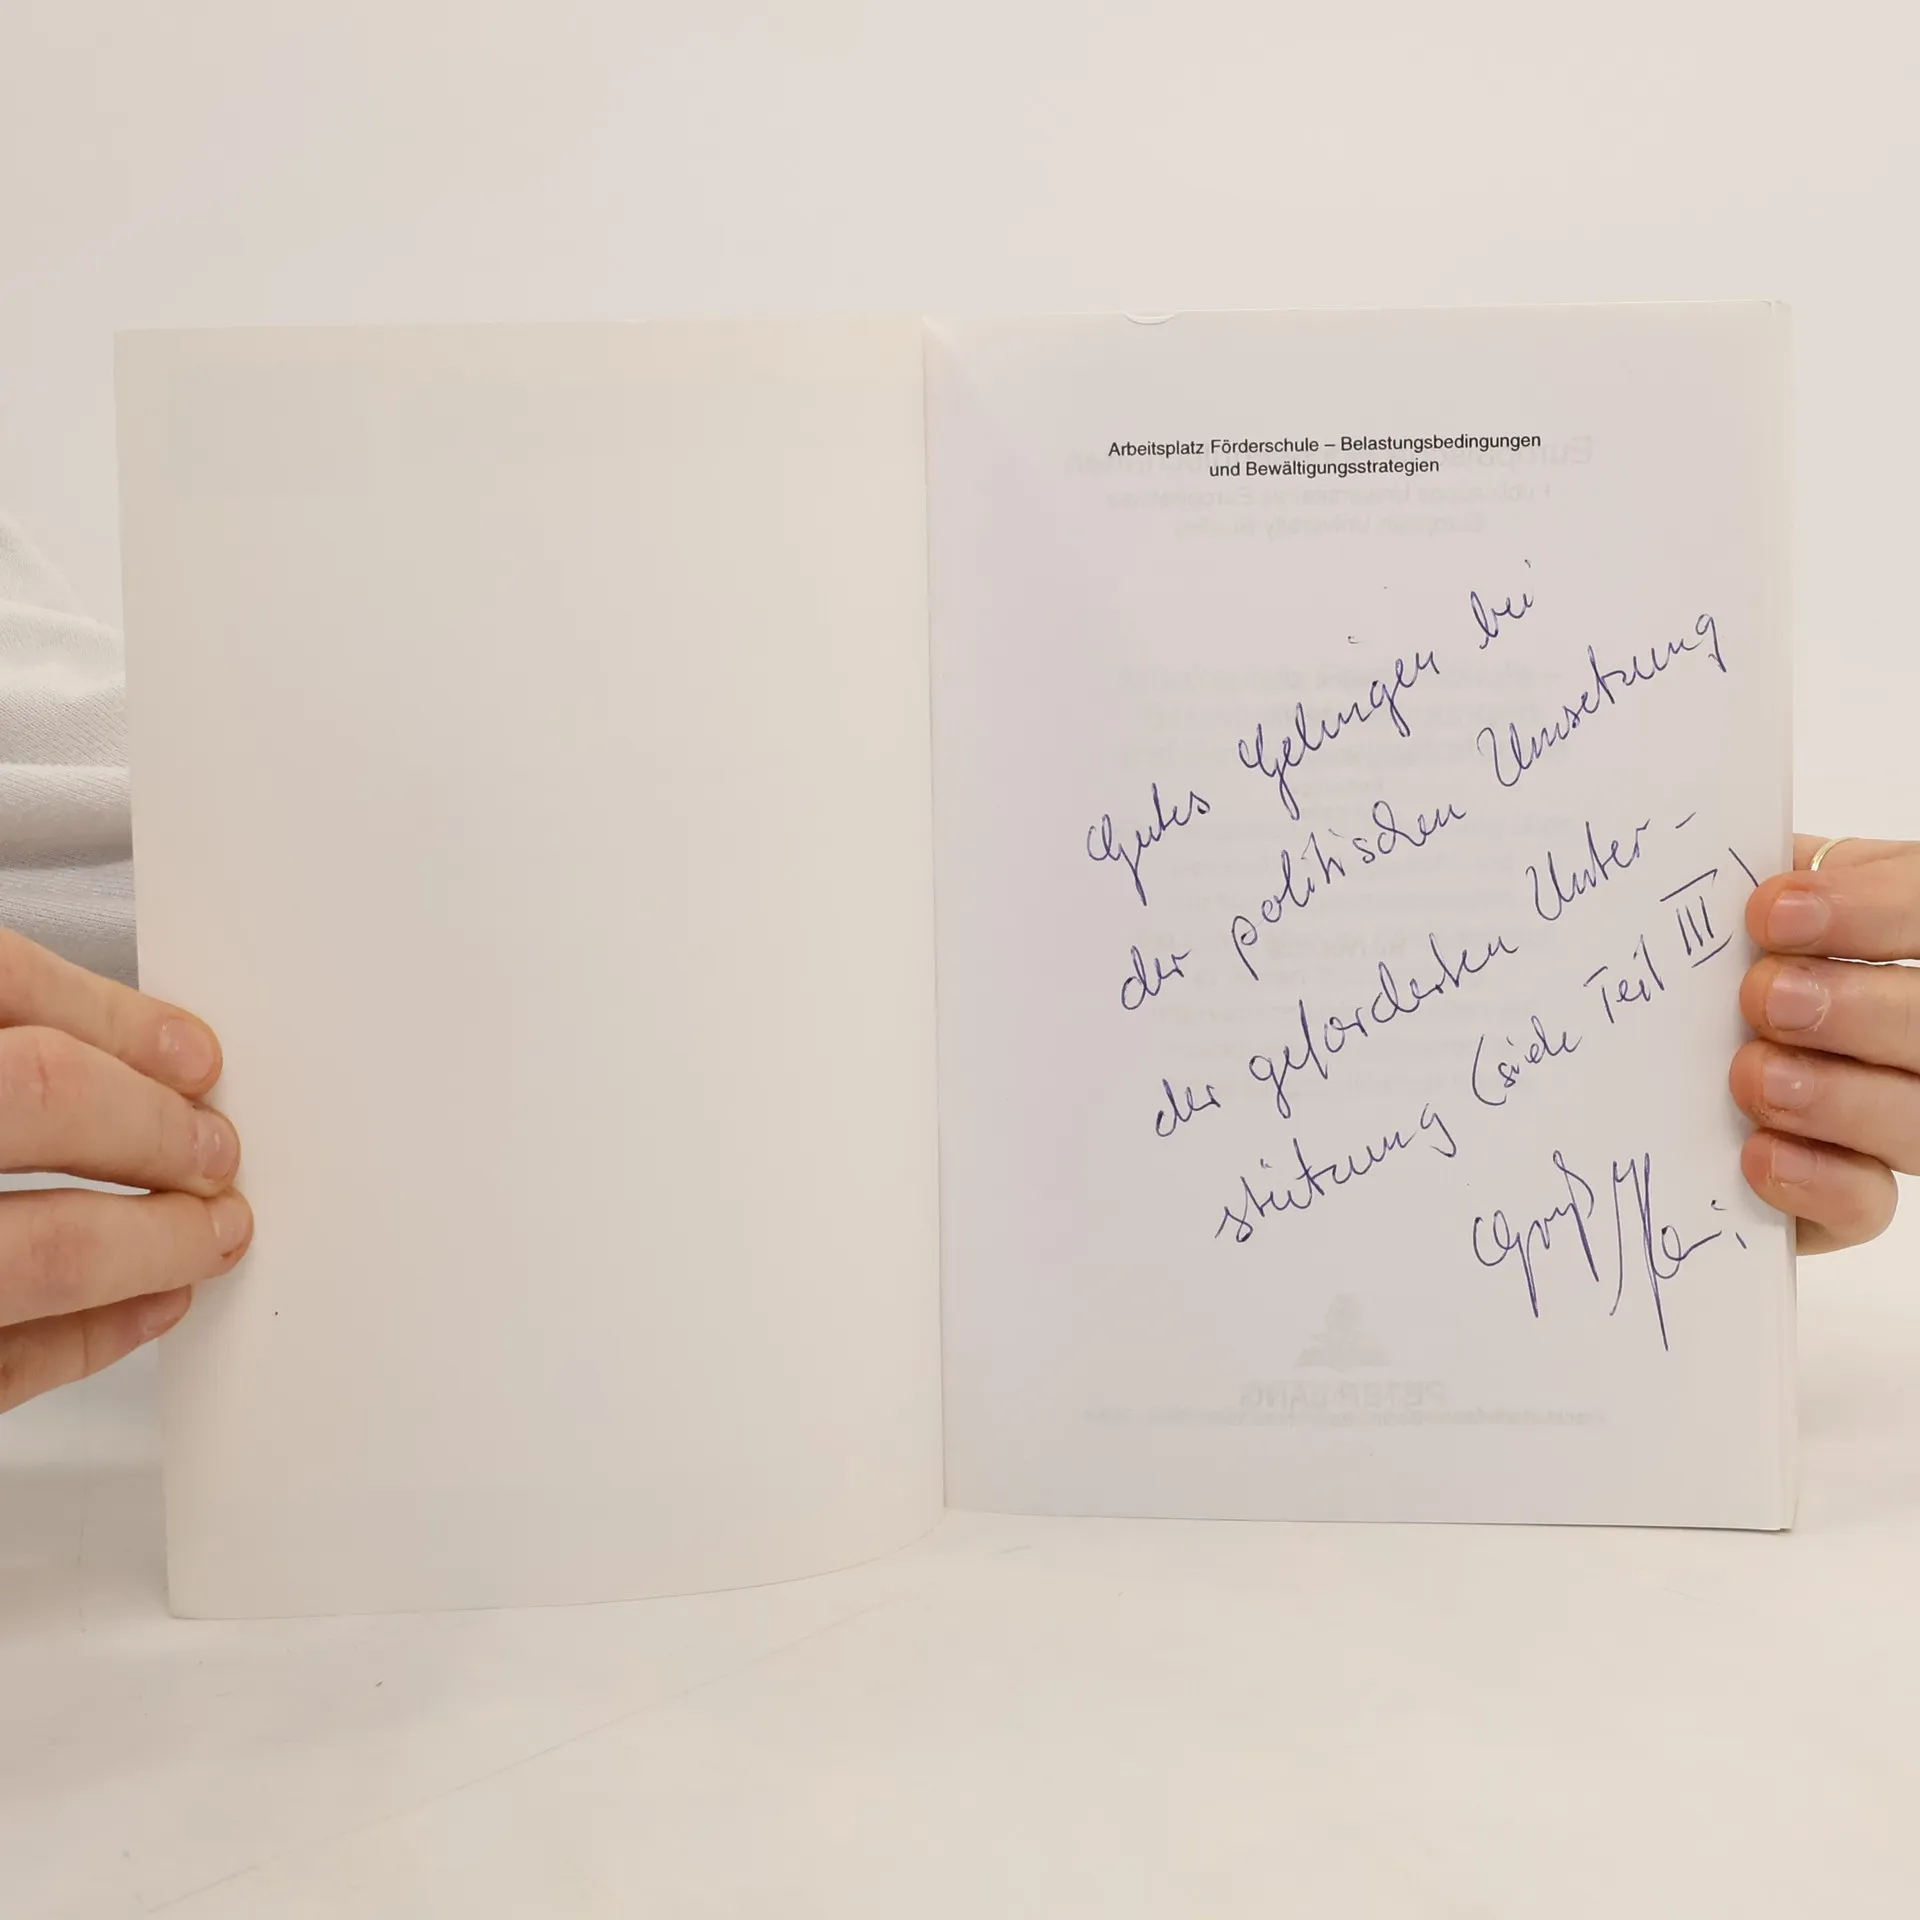 Arbeitsplatz Förderschule – Belastungsbedingungen
und Bewältigungsstrategien
Gutes Gelingen bei
der politischen Umsetzung
der geforderten Unter-
stützung (siehe Teil III)
Gruß
PETER LANG